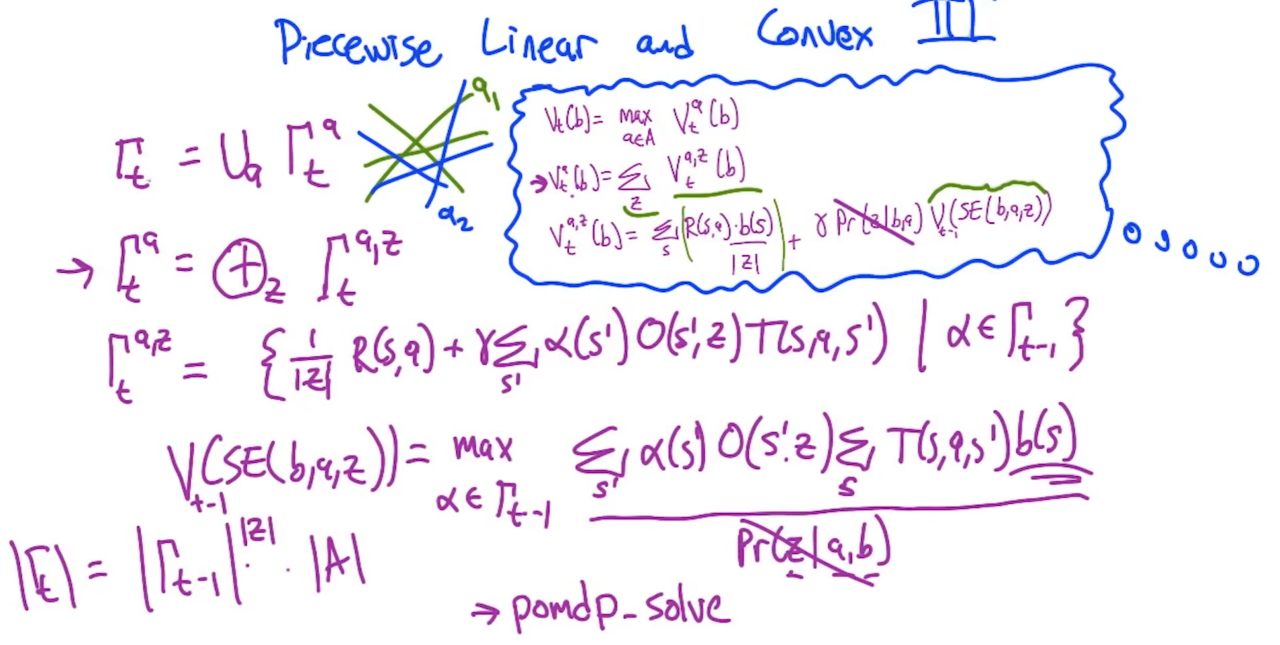 Piecewise Linear and Convex III
Γ_t = ∪_a Γ_t^a
a_1
a_2
V_t(b) = max_{a∈A} V_t^a(b)
→ V_t^a(b) = Σ_z V_t^{a,z}(b)
V_t^{a,z}(b) = Σ_s (R(s,a)·b(s) / |z|) + γ Pr(z|b,a) V_{t-1}(SE(b,a,z))
→ Γ_t^a = ⊕_z Γ_t^{a,z}
Γ_t^{a,z} = { 1/|z| R(s,a) + γ Σ_{s'} α(s') O(s',z) T(s,a,s') | α ∈ Γ_{t-1} }
V_{t-1}(SE(b,a,z)) = max_{α ∈ Γ_{t-1}} Σ_{s'} α(s') O(s',z) Σ_s T(s,a,s') b(s) / Pr(z|a,b)
|Γ_t| = |Γ_{t-1}|^{|z|} · |A|
→ pomdp_solve